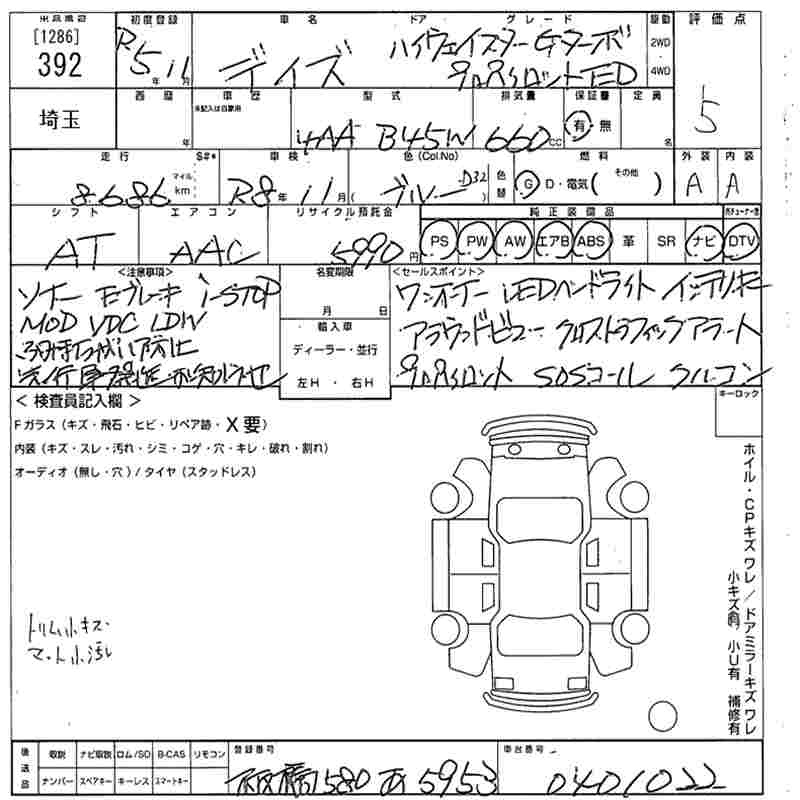 [1286]
392
埼玉
初度登録 R5年11月
車名 デイズ
ドア グレード ハイウェイスターGターボ
プロパイロットED
駆動 2WD 4WD
評価点 5
西暦 年
車歴 ※記入は自家用
型式 4AA B45W
排気量 660cc
保証書 有 無
定員 名
走行 8686 マイル km
S#*
車検 R8年11月
色(Col.No) ブルー D32 色替
燃料 G D・電気( その他 )
外装 A
内装 A
シフト AT
エアコン AAC
リサイクル預託金 5990円
純正装備品 PS PW AW エアB ABS 革 SR ナビ DTV
<注意事項>
ソナー エブレーキ i-STOP
MOD VDC LDW
ふみまちがい防止
先行車発進お知らせ
名変期限 月 日
輸入車
ディーラー・並行
左H ・ 右H
<セールスポイント>
ワンオーナー LEDヘンドライト インテリキー
アラウンドビュー クロストラフィックアラート
プロパイロット SOSコール クルコン
< 検査員記入欄 >
キーロック
Fガラス (キズ・飛石・ヒビ・リペア跡・X要)
内装 (キズ・スレ・汚れ・シミ・コゲ・穴・キレ・破れ・割れ)
オーディオ (無し・穴) / タイヤ (スタッドレス)
ホイル・CPキズ ワレ / ドアミラーキズ ワレ
小キズ 小U有 補修有
トリム小キズ
マット小汚レ
後送品 取説 ナビ取説 ロム/SD B-CAS リモコン
ナンバー スペアキー キーレス スマートキー
登録番号 板橋 580 あ 5953
車台番号 0401022